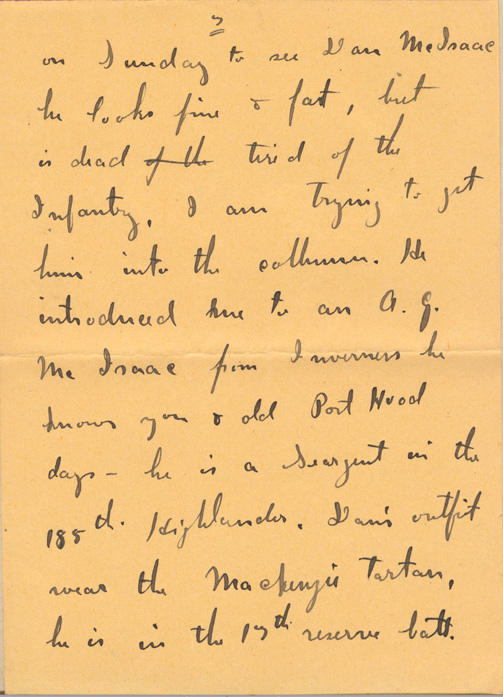 3
on Sunday to see Dan McIsaac
he looks fine & fat, but
is dead of the tired of the
Infantry, I am trying to get
him into the collumn. He
introduced me to an A. G.
Mc Isaac from Inverness he
knows you & old Port Hood
days - he is a Seargent in the
185th. Highlanders. Dan's outfit
wear the Mackenzie Tartan,
he is in the 17th reserve batt.